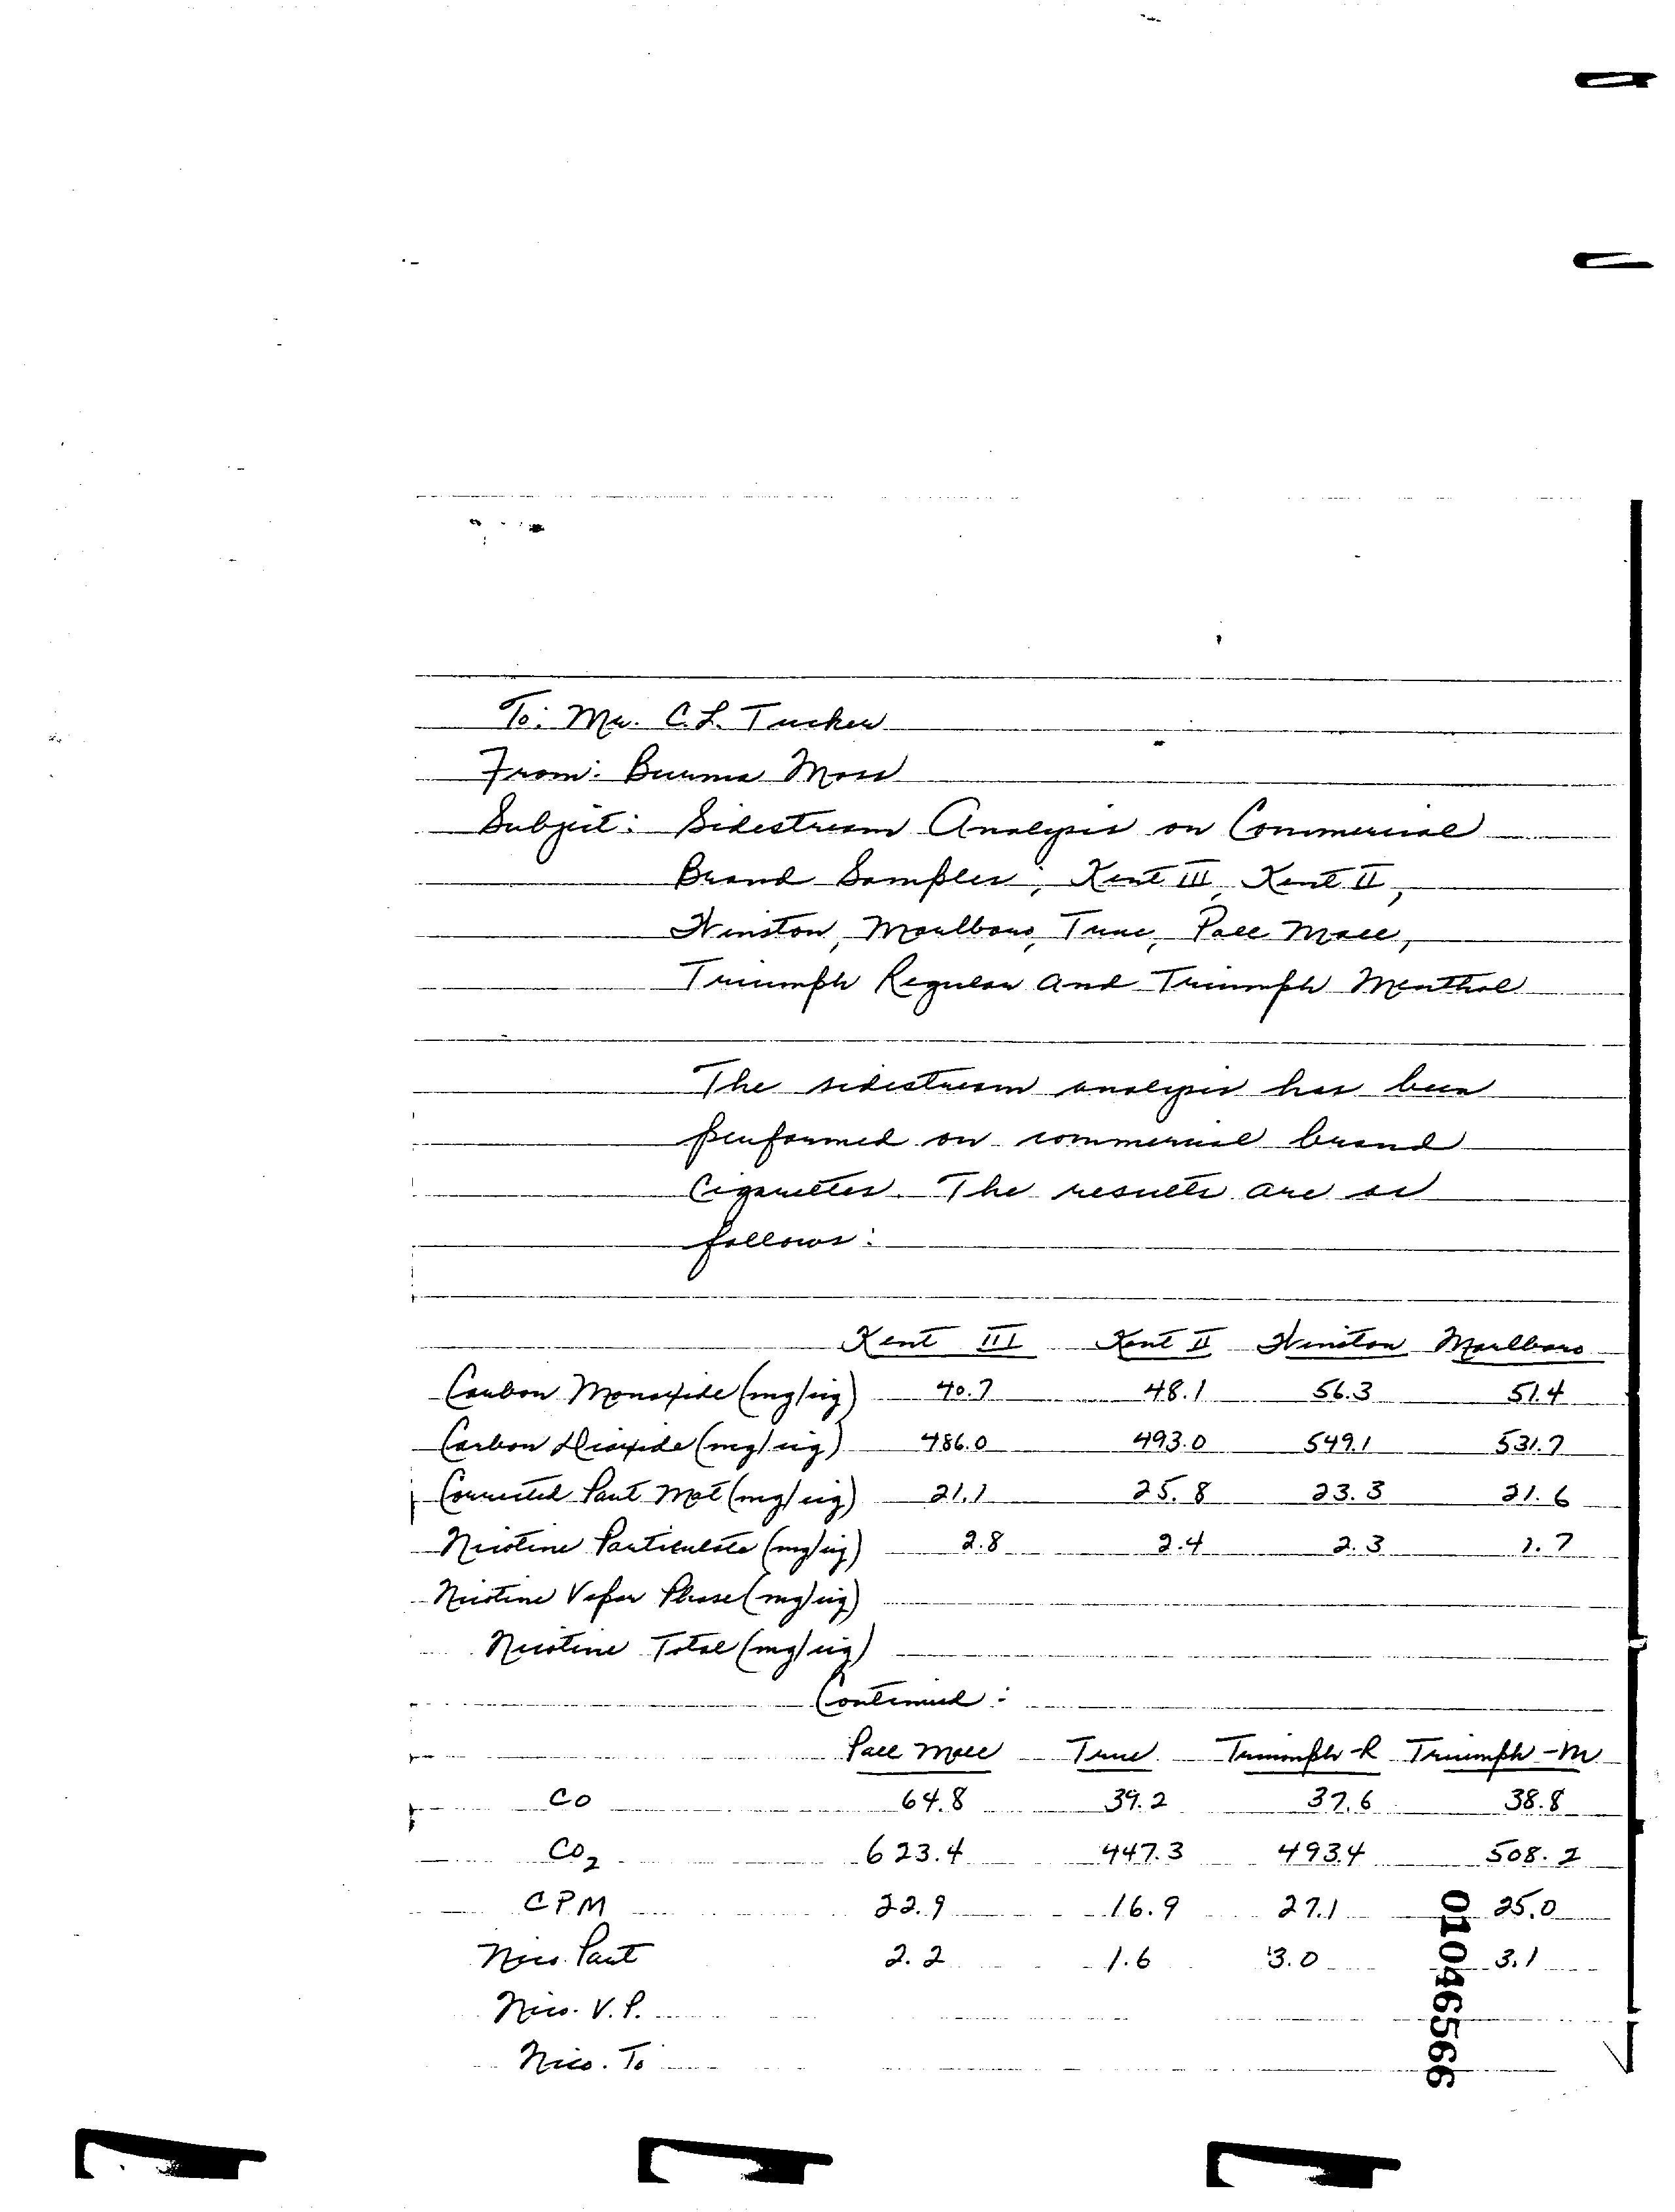 To: Mr. C.L. Tucker
From: Burma Moss
Subject: Sidestream Analysis on Commercial
Brand Samples; Kent III, Kent II,
Winston, Marlboro, True, Pall Mall,
Triumph Regular and Triumph Menthol
The sidestream analysis has been
performed on commercial brand
Cigarettes. The results are as
follows:
Kent III Kent II Winston Marlboro
Carbon Monoxide (mg/cig) 40.7 48.1 56.3 51.4
Carbon Dioxide (mg/cig) 486.0 493.0 549.1 531.7
Corrected Part Mat (mg/cig) 21.1 25.8 23.3 21.6
Nicotine Particulate (mg/cig) 2.8 2.4 2.3 1.7
Nicotine Vapor Phase (mg/cig)
Nicotine Total (mg/cig)
Continued:
Pall Mall True Triumph-R Triumph-M
CO 64.8 39.2 37.6 38.8
CO2 623.4 447.3 493.4 508.2
CPM 22.9 16.9 27.1 25.0
Nico. Part 2.2 1.6 3.0 3.1
Nico. V.P.
Nico. To
01046566